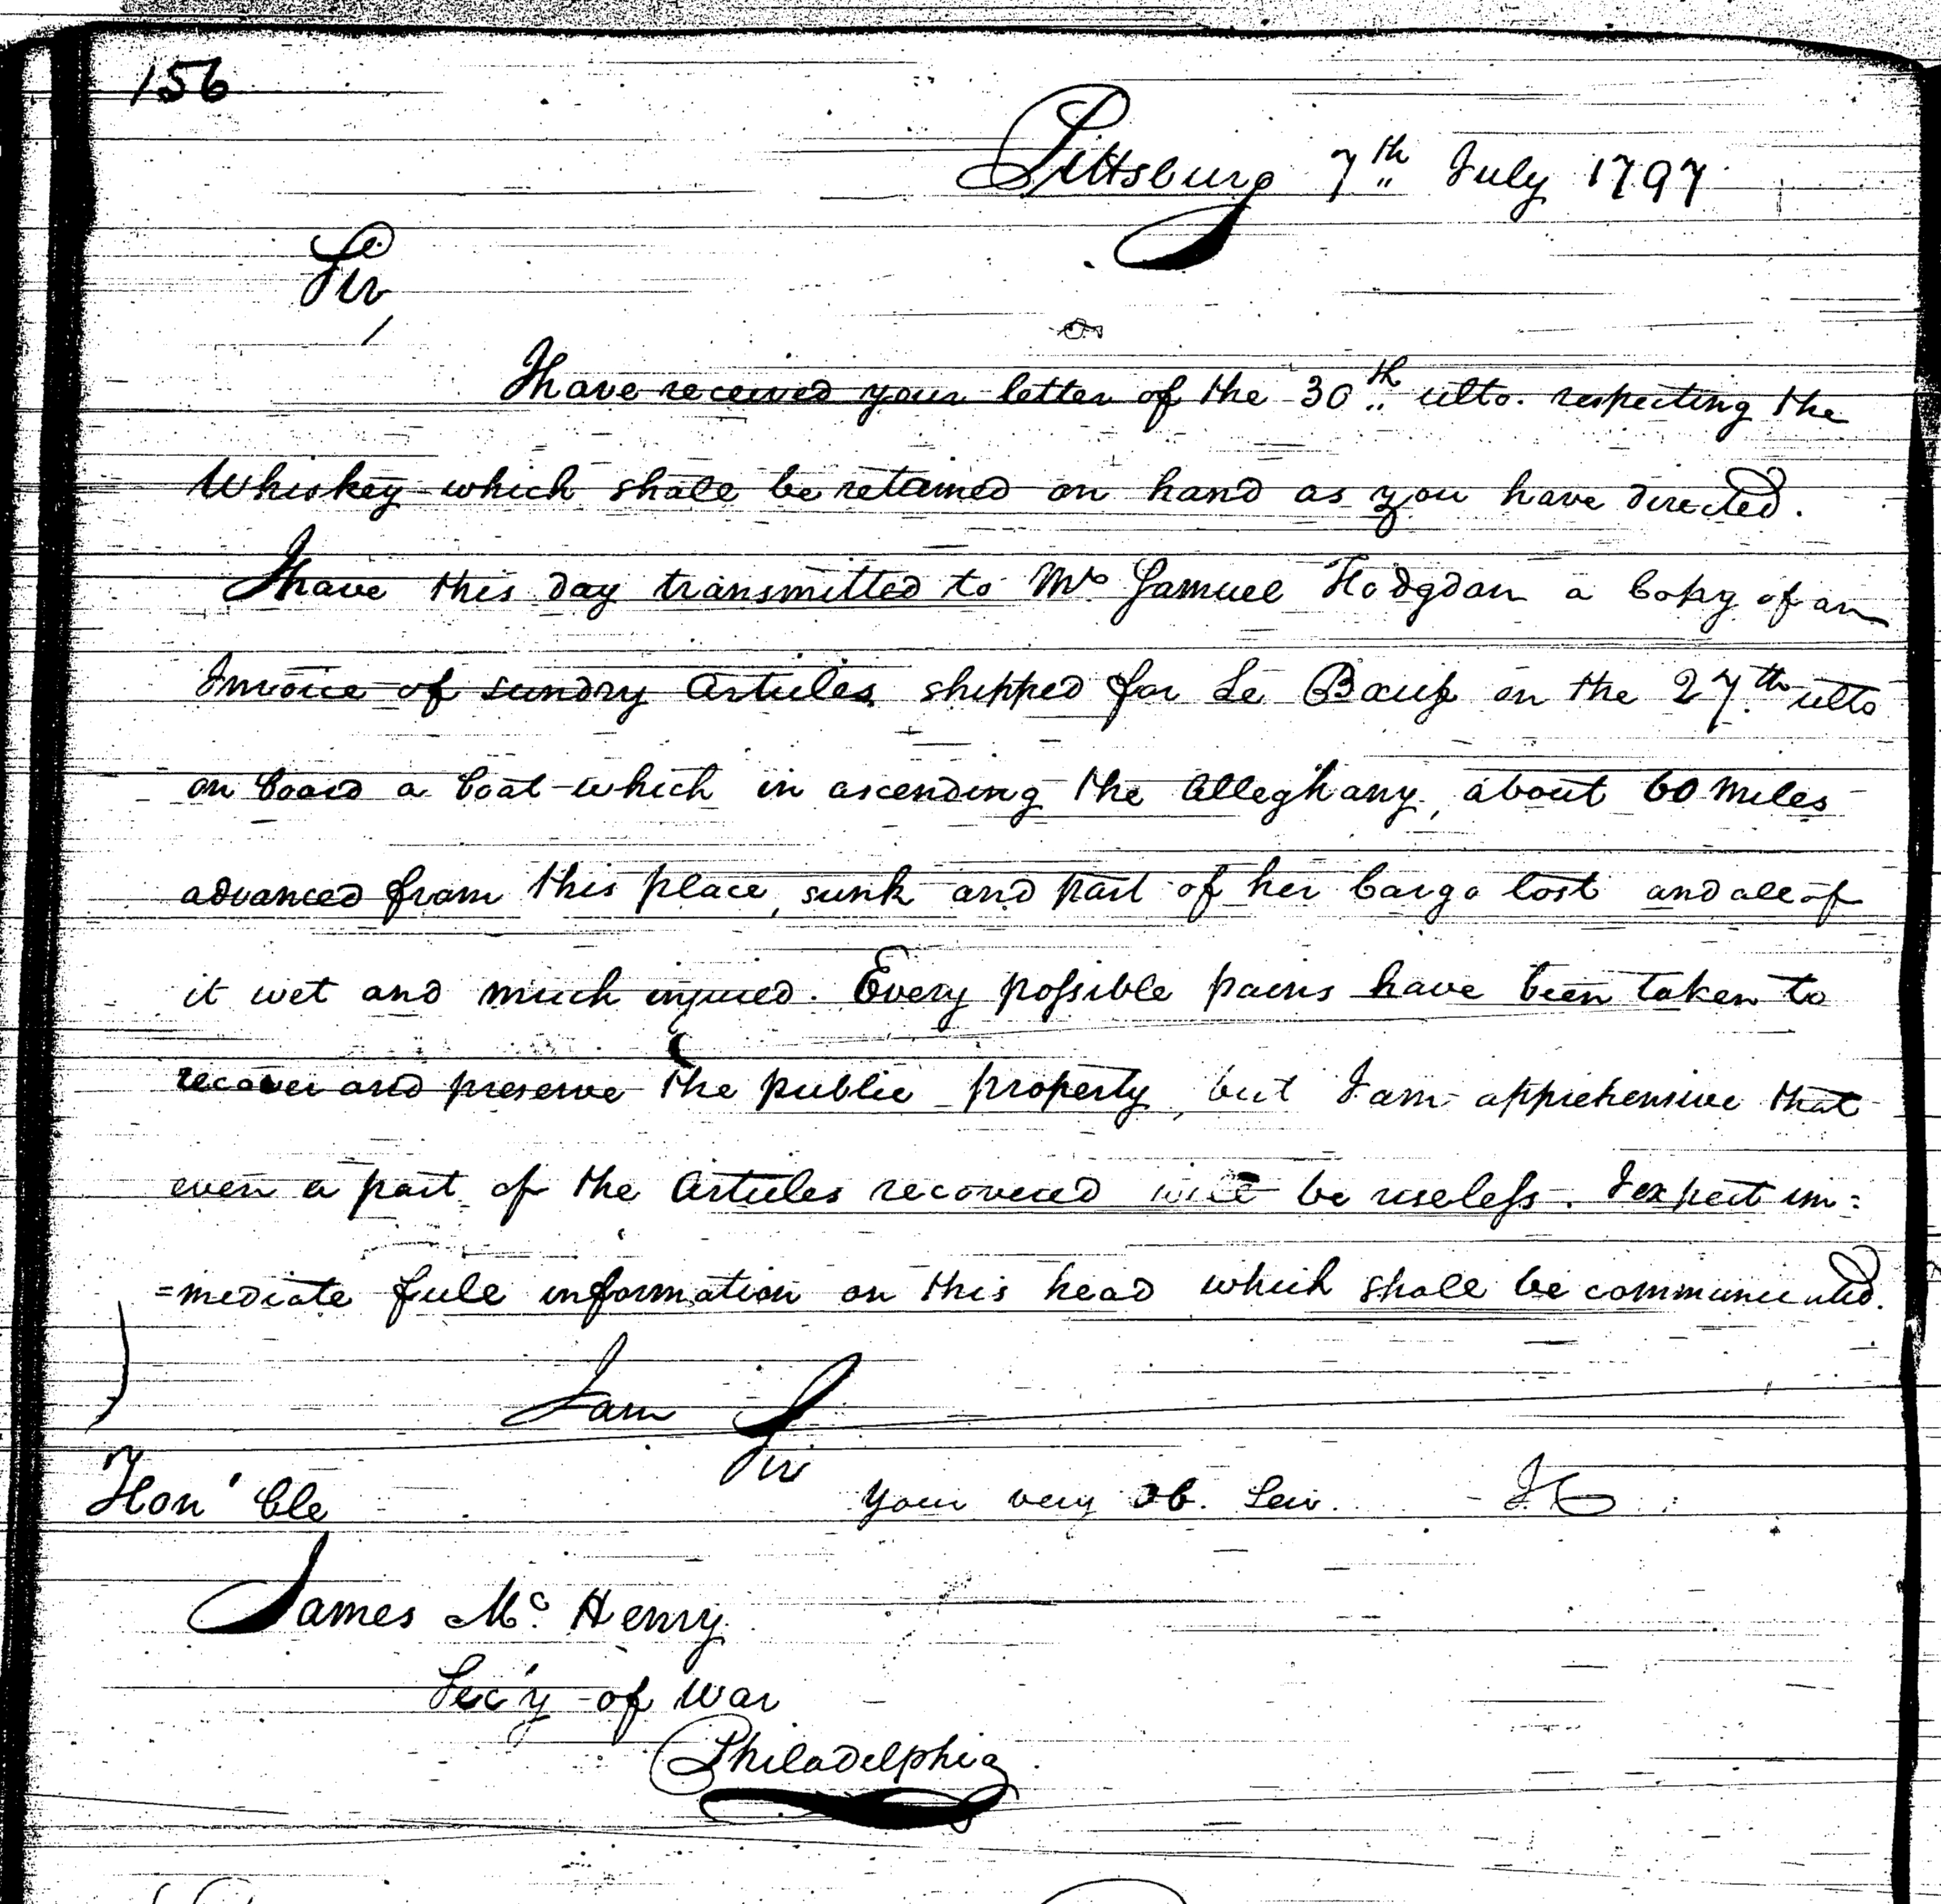 156
Pittsburg 7th July 1797
Sir
I have received your letter of the 30th ulto. respecting the
Whiskey which shall be retained on hand as you have directed.
I have this day transmitted to Mr Samuel Hodgdon a Copy of an
Invoice of sundry Articles shipped for Le Bœuf on the 27th ulto
on board a boat which in ascending the Alleghany, about 60 miles
advanced from this place, sunk and part of her Cargo lost and all of
it wet and much injured. Every possible pains have been taken to
recover and preserve the public property, but I am apprehensive that
even a part of the Articles recovered will be useless. I expect im=
=mediate full information on this head which shall be communicated.
I am Sir
your very Ob. Ser.
Hon'ble
James Mc Henry
Sec'y of War
Philadelphia